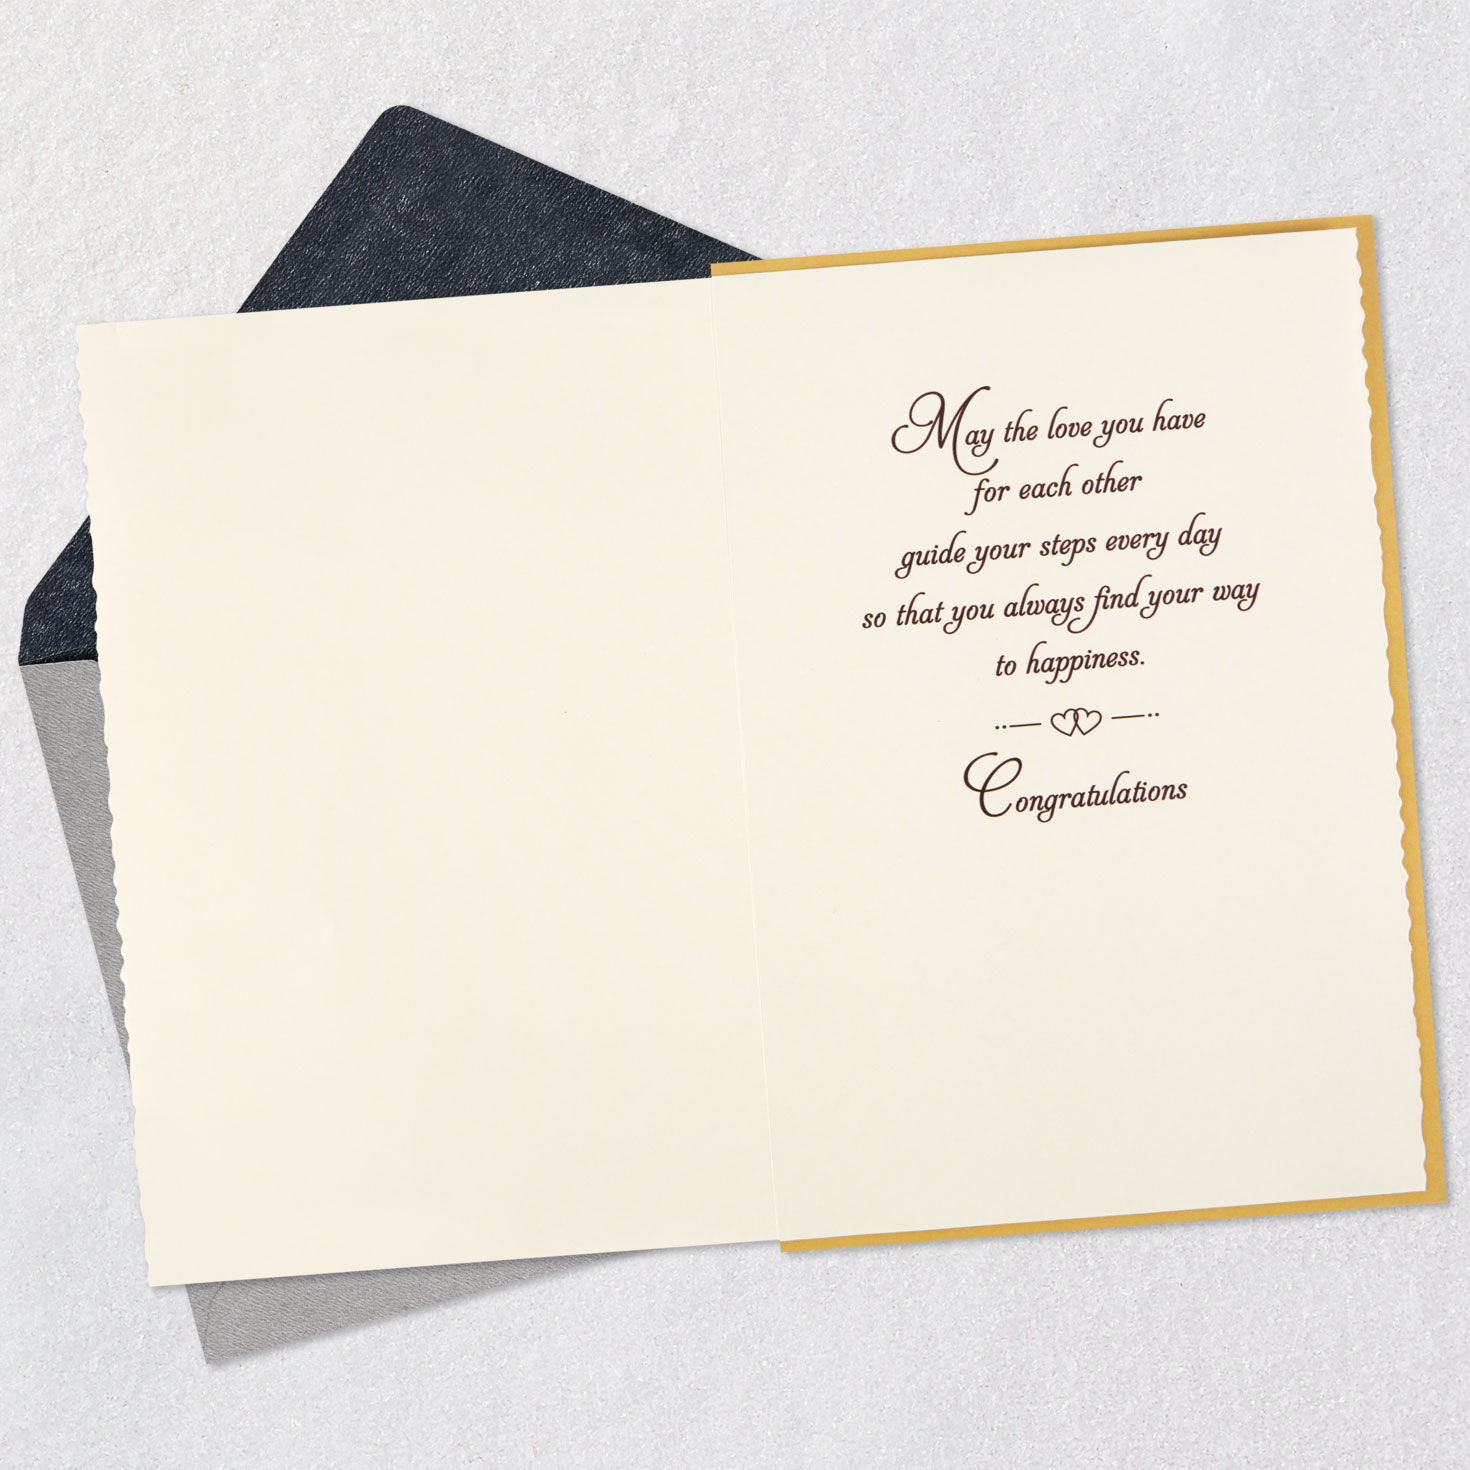 May the love you have
for each other
guide your steps every day
so that you always find your way
to happiness.
Congratulations